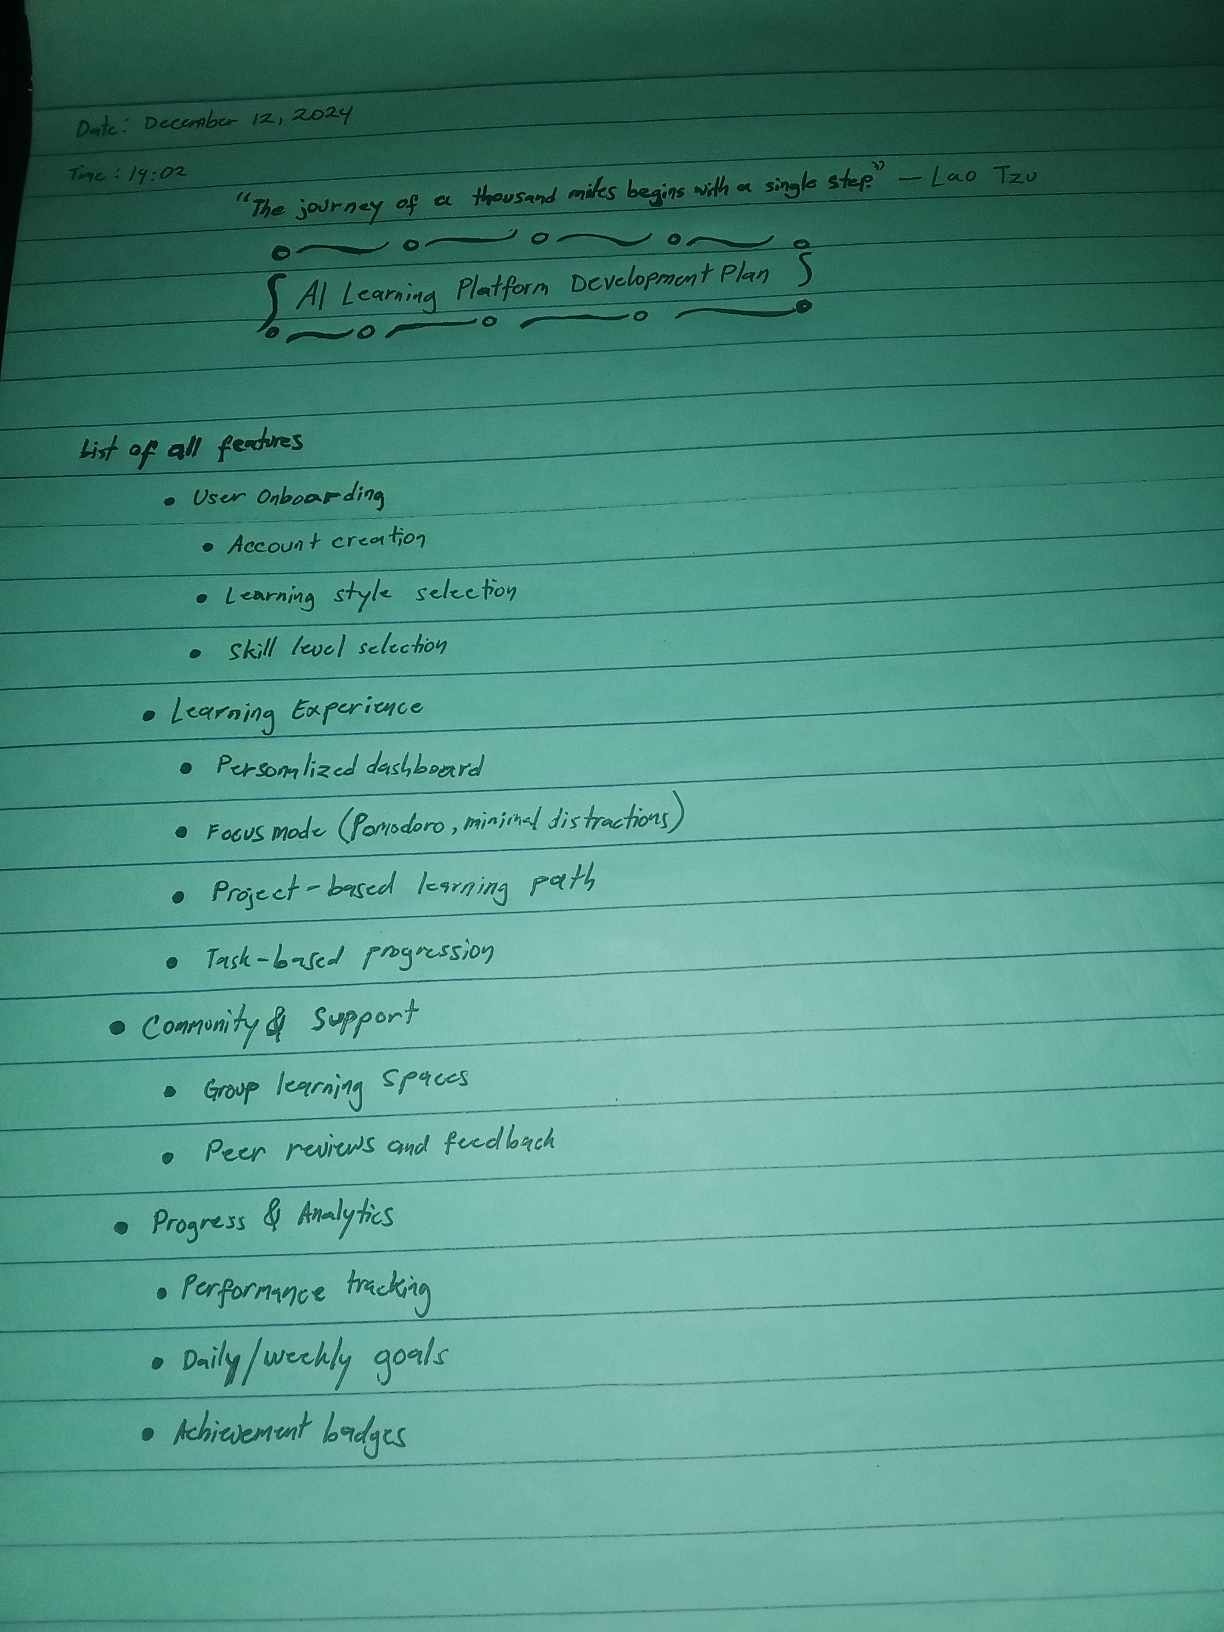 Date: December 12, 2024
Time: 14:02
"The journey of a thousand miles begins with a single step." — Lao Tzu
AI Learning Platform Development Plan
List of all features
• User Onboarding
• Account creation
• Learning style selection
• Skill level selection
• Learning Experience
• Personalized dashboard
• Focus mode (Pomodoro, minimal distractions)
• Project-based learning path
• Task-based progression
• Community & Support
• Group learning spaces
• Peer reviews and feedback
• Progress & Analytics
• Performance tracking
• Daily/weekly goals
• Achievement badges